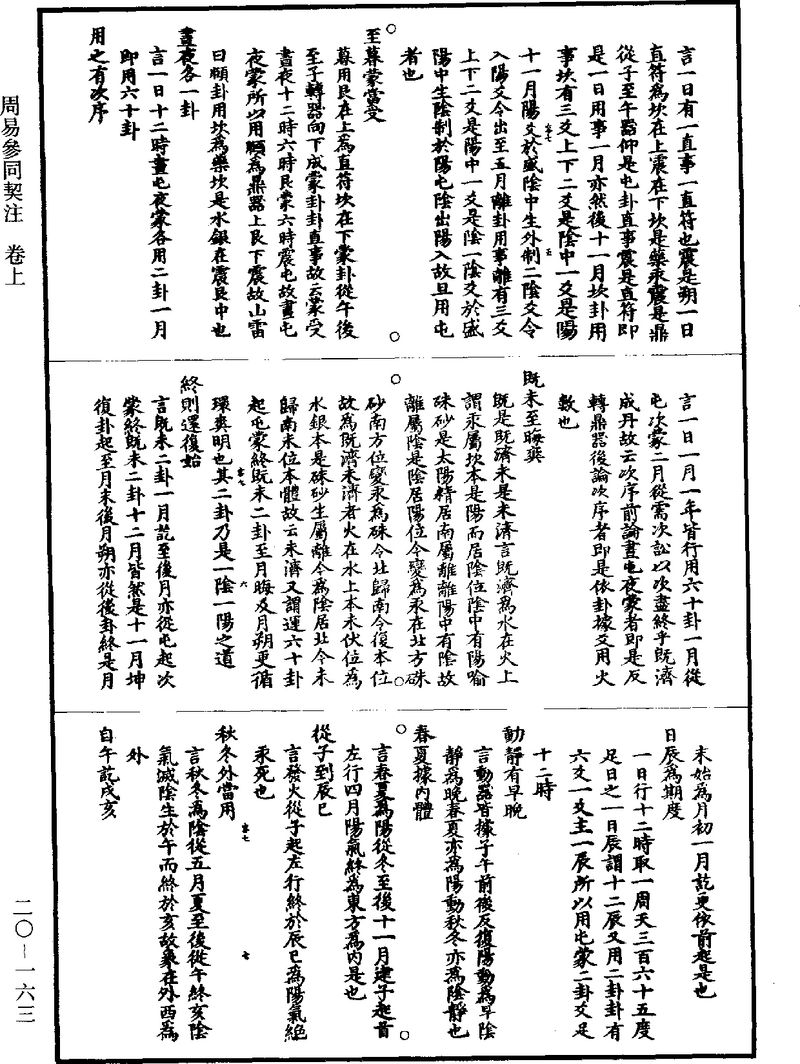 周易參同契注　卷上
言一日有一直事一直符也震是朔一日
直符為坎在上震在下坎是藥汞震是鼎
從子至午器仰是屯卦直事震是直符即
是一日用事一月亦然後十一月坎卦用
事坎有三爻上下二爻是陰中一爻是陽
十一月陽爻於盛陰中生外制二陰爻令
入陽爻令出至五月離卦用事離有三爻
上下二爻是陽中一爻是陰一陰爻於盛
陽中生陰制於陽屯陰出陽入故旦用屯
者也
至暮蒙當受
暮用艮在上為直符坎在下蒙卦從午後
至子轉器向下成蒙卦卦直事故云蒙受
晝夜十二時六時艮蒙六時震屯故晝屯
夜蒙所以用頤為鼎器上艮下震故山雷
曰頤卦用坎為藥坎是水銀在震艮中也
晝夜各一卦
言一日十二時晝屯夜蒙各用二卦一月
即用六十卦
用之有次序
言一日一月一年皆行用六十卦一月從
屯次蒙二月從需次訟以次盡終乎既濟
成丹故云次序前論晝屯夜蒙者即是反
轉鼎器後論次序者即是依卦據爻用火
數也
既未至晦爽
既是既濟未是未濟言既濟為水在火上
謂汞屬坎本是陽而居陰位陰中有陽喻
硃砂是太陽精居南屬離離陽中有陰故
離屬陰是陰居陽位今變為汞在北方硃
砂南方位變汞為硃令北歸南令復本位
故為既濟未濟者火在水上本未伏位為
水銀本是硃砂生屬離今為陰居北今未
歸南未位本體故云未濟又謂運六十卦
起屯蒙終既未二卦至月晦及月朔更循
環爽明也其二卦乃是一陰一陽之道
終則還復始
言既未二卦一月訖至後月亦從屯起次
蒙終既未二卦十二月皆然是十一月坤
復卦起至月末後月朔亦從後卦終是月
末始為月初一月訖更依前起是也
日辰為期度
一日行十二時取一周天三百六十五度
足日之一日辰謂十二辰又用二卦卦有
六爻一爻主一辰所以用屯蒙二卦爻足
十二時
動靜有早晚
言動器皆據子午前後反復陽動為早陰
靜為晚春夏亦為陽動秋冬亦為陰靜也
春夏據內體
言春夏為陽從冬至後十一月建子起首
左行四月陽氣終為東方為內是也
從子到辰巳
言發火從子起左行終於辰巳為陽氣絕
汞死也
秋冬外當用
言秋冬為陰從五月夏至後從午終亥陰
氣滅陰生於午而終於亥故象在外西為
外
自午訖戌亥
二〇－一六三